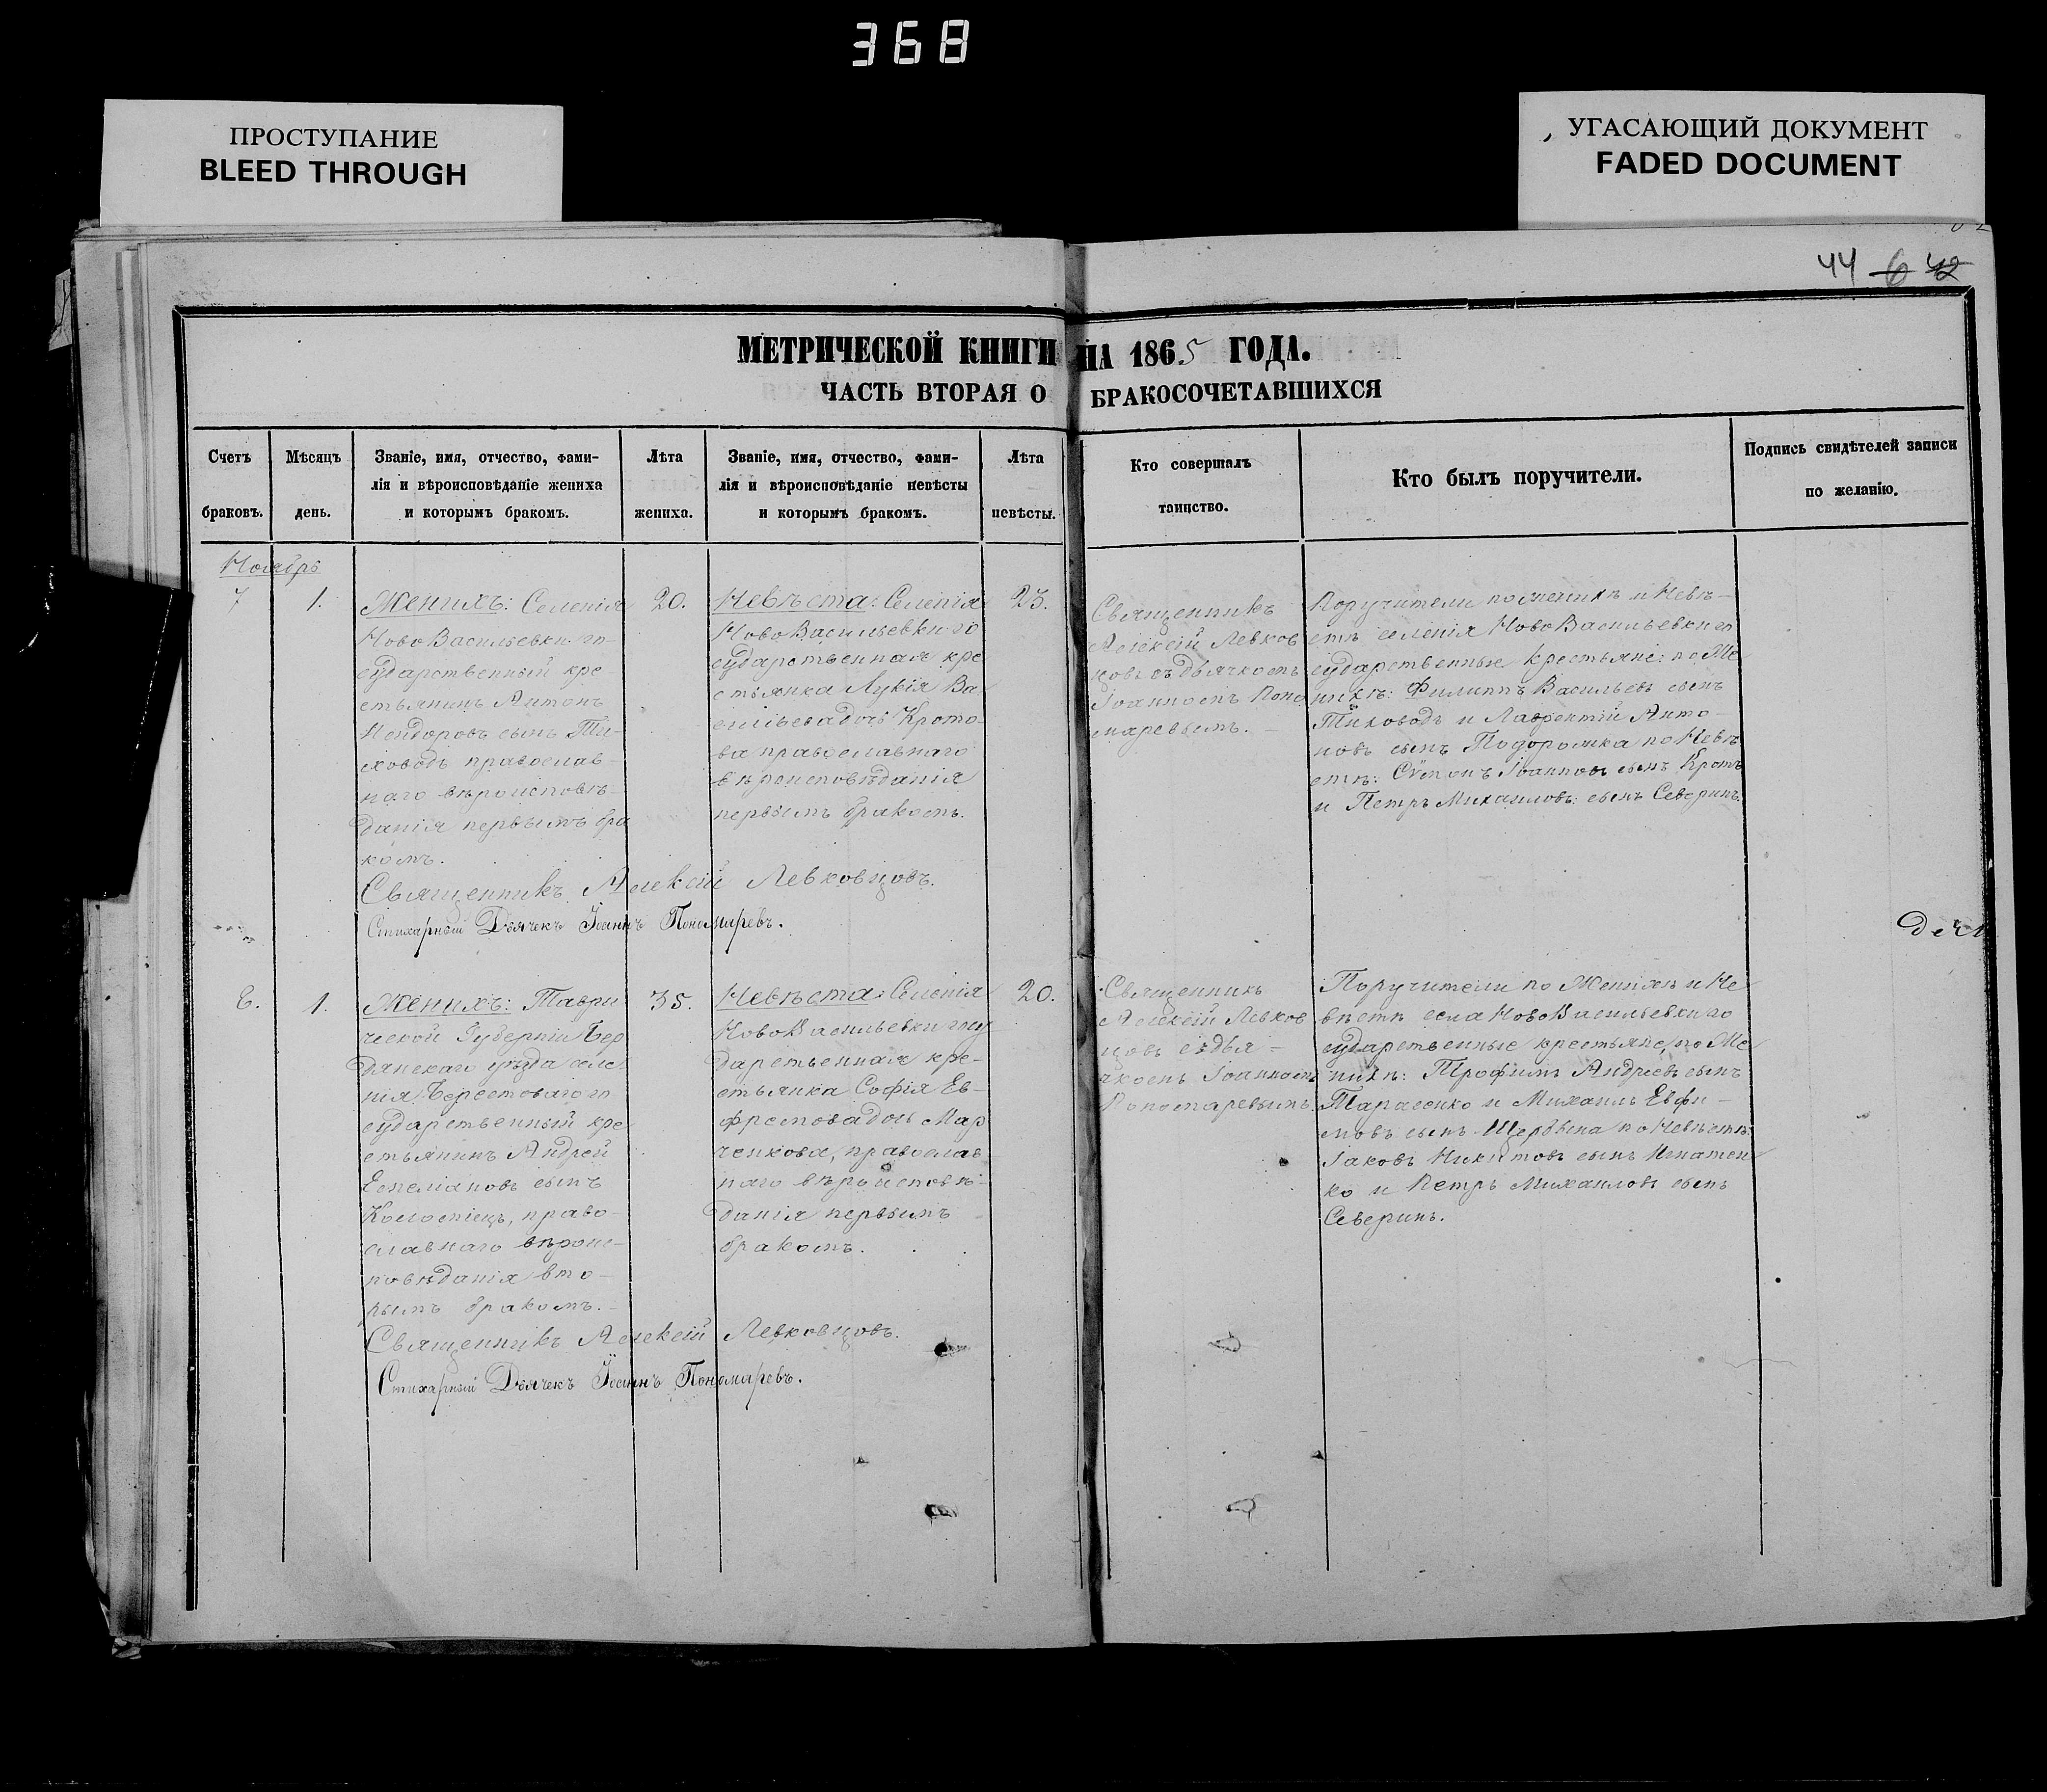 368
ПРОСТУПАНИЕ
BLEED THROUGH
УГАСАЮЩИЙ ДОКУМЕНТ
FADED DOCUMENT
44 6 42
МЕТРИЧЕСКОЙ КНИГИ НА 1865 ГОДА.
ЧАСТЬ ВТОРАЯ О БРАКОСОЧЕТАВШИХСЯ
Счетъ
браковъ.
Мѣсяцъ
день.
Званіе, имя, отчество, фами-
лія и вѣроисповѣданіе жениха
и которымъ бракомъ.
Лѣта
жениха.
Званіе, имя, отчество, фами-
лія и вѣроисповѣданіе невѣсты
и которымъ бракомъ.
Лѣта
невѣсты.
Кто совершалъ
таинство.
Кто былъ поручители.
Подпись свидѣтелей записи
по желанію.
Ноябрь
7
1.
Женихъ: Селенія
НовоВасильевки го
сударственный кре
стьянинъ Антонъ
сынъ Ти-
ховодъ православ-
наго вѣроисповѣ-
данія первымъ бра
комъ.
20.
Невѣста: Селенія
НовоВасильевки го
сударственная кре
стьянка Лукія Ва
сильева дочь Крото-
ва православнаго
вѣроисповѣданія
первымъ бракомъ.
23.
Священникъ
Алексѣй Левков
цовъ съ дьячкомъ
Іоанномъ Поно
маревымъ.
Поручители по женихѣ и Невѣ-
стѣ селенія НовоВасильевки го
сударственные крестьяне: по Же
нихѣ: Филиппъ Васильевъ сынъ
Тиховодъ и Лаврентій Анто-
новъ сынъ Подорожка по Невѣ
стѣ: Сѵмеонъ Іоанновъ сынъ Кротъ
и Петръ Михаиловъ: сынъ Северинъ.
Священникъ Алексѣй Левковцовъ.
Стихарный Дьячекъ Іоаннъ Пономаревъ.
1.
Женихъ: Таври
ческой Губерніи Бер
дянскаго уѣзда селе
нія Берестоваго го
сударственный кре
стьянинъ Андрей
Емеліановъ сынъ
право-
славнаго вѣроис-
повѣданія вто-
рымъ бракомъ.
35.
Невѣста: Селенія
НовоВасильевки госу
дарственная кре-
стьянка Софія Ев-
дочь Мар
ченкова, православ
наго вѣроисповѣ-
данія первымъ
бракомъ.
20.
Священникъ
Алексѣй Левков
цовъ съ дья-
чкомъ Іоанномъ
Пономаревымъ.
Поручители по Женихѣ и Не
вѣстѣ села НовоВасильевки го
сударственные крестьяне, по Же
нихѣ: Трофимъ Андреевъ сынъ
Тарасенко и Михаилъ Евфи-
мовъ сынъ Щербина по Невѣстѣ:
Іаковъ Никитовъ сынъ Игнатен
ко и Петръ Михаиловъ сынъ
Северинъ.
Священникъ Алексѣй Левковцовъ.
Стихарный Дьячекъ Іоаннъ Пономаревъ.